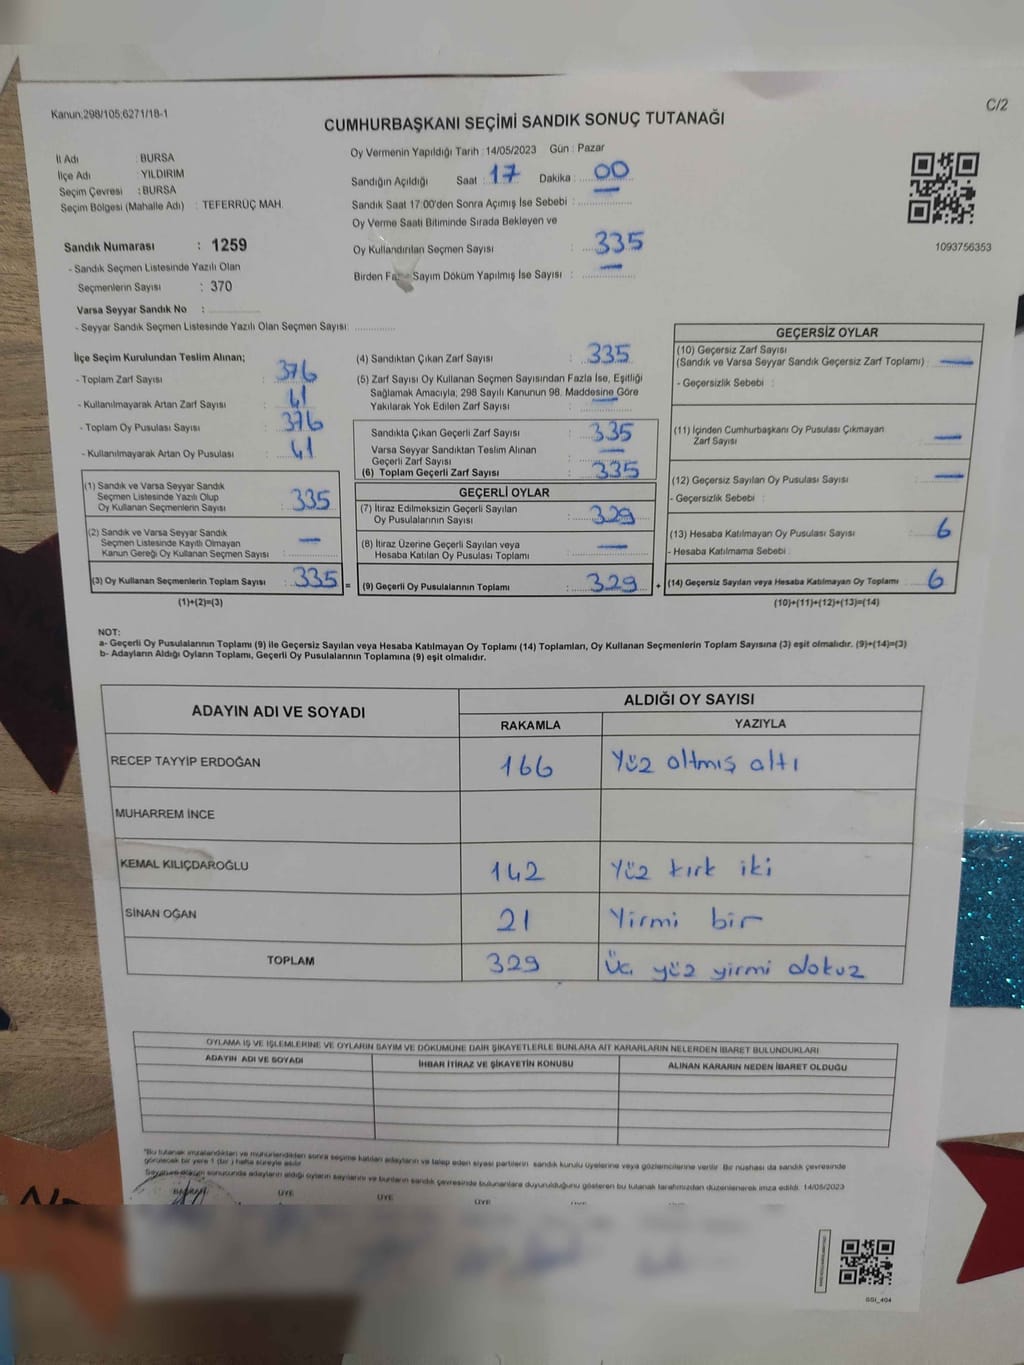 Kanun;298/105;6271/18-1
C/2
CUMHURBAŞKANI SEÇİMİ SANDIK SONUÇ TUTANAĞI
İl Adı : BURSA
İlçe Adı : YILDIRIM
Seçim Çevresi : BURSA
Seçim Bölgesi (Mahalle Adı) : TEFERRÜÇ MAH.
Sandık Numarası : 1259
- Sandık Seçmen Listesinde Yazılı Olan
Seçmenlerin Sayısı : 370
Varsa Seyyar Sandık No :
- Seyyar Sandık Seçmen Listesinde Yazılı Olan Seçmen Sayısı:
Oy Vermenin Yapıldığı Tarih : 14/05/2023 Gün : Pazar
Sandığın Açıldığı Saat : 17 Dakika : 00
Sandık Saat 17:00'den Sonra Açımış İse Sebebi :
Oy Verme Saati Bitiminde Sırada Bekleyen ve
Oy Kullandırılan Seçmen Sayısı : 335
Birden Fazla Sayım Döküm Yapılmış İse Sayısı : —
1093756353
İlçe Seçim Kurulundan Teslim Alınan;
- Toplam Zarf Sayısı : 376
- Kullanılmayarak Artan Zarf Sayısı : 41
- Toplam Oy Pusulası Sayısı : 376
- Kullanılmayarak Artan Oy Pusulası : 41
(1) Sandık ve Varsa Seyyar Sandık
Seçmen Listesinde Yazılı Olup
Oy Kullanan Seçmenlerin Sayısı : 335
(2) Sandık ve Varsa Seyyar Sandık
Seçmen Listesinde Kayıtlı Olmayan
Kanun Gereği Oy Kullanan Seçmen Sayısı : —
(3) Oy Kullanan Seçmenlerin Toplam Sayısı : 335 =
(1)+(2)=(3)
(4) Sandıktan Çıkan Zarf Sayısı : 335
(5) Zarf Sayısı Oy Kullanan Seçmen Sayısından Fazla İse, Eşitliği
Sağlamak Amacıyla; 298 Sayılı Kanunun 98. Maddesine Göre
Yakılarak Yok Edilen Zarf Sayısı : —
Sandıkta Çıkan Geçerli Zarf Sayısı : 335
Varsa Seyyar Sandıktan Teslim Alınan
Geçerli Zarf Sayısı : —
(6) Toplam Geçerli Zarf Sayısı : 335
GEÇERLİ OYLAR
(7) İtiraz Edilmeksizin Geçerli Sayılan
Oy Pusulalarının Sayısı : 329
(8) İtiraz Üzerine Geçerli Sayılan veya
Hesaba Katılan Oy Pusulası Toplamı : —
(9) Geçerli Oy Pusulalarının Toplamı : 329 +
GEÇERSİZ OYLAR
(10) Geçersiz Zarf Sayısı
(Sandık ve Varsa Seyyar Sandık Geçersiz Zarf Toplamı) : —
- Geçersizlik Sebebi :
(11) İçinden Cumhurbaşkanı Oy Pusulası Çıkmayan
Zarf Sayısı : —
(12) Geçersiz Sayılan Oy Pusulası Sayısı : —
- Geçersizlik Sebebi :
(13) Hesaba Katılmayan Oy Pusulası Sayısı : 6
- Hesaba Katılmama Sebebi :
(14) Geçersiz Sayılan veya Hesaba Katılmayan Oy Toplamı : 6
(10)+(11)+(12)+(13)=(14)
NOT:
a- Geçerli Oy Pusulalarının Toplamı (9) ile Geçersiz Sayılan veya Hesaba Katılmayan Oy Toplamı (14) Toplamları, Oy Kullanan Seçmenlerin Toplam Sayısına (3) eşit olmalıdır. (9)+(14)=(3)
b- Adayların Aldığı Oyların Toplamı, Geçerli Oy Pusulalarının Toplamına (9) eşit olmalıdır.
ADAYIN ADI VE SOYADI
ALDIĞI OY SAYISI
RAKAMLA YAZIYLA
RECEP TAYYİP ERDOĞAN 166 Yüz altmış altı
MUHARREM İNCE
KEMAL KILIÇDAROĞLU 142 Yüz kırk iki
SİNAN OĞAN 21 Yirmi bir
TOPLAM 329 Üç yüz yirmi dokuz
OYLAMA İŞ VE İŞLEMLERİNE VE OYLARIN SAYIM VE DÖKÜMÜNE DAİR ŞİKAYETLERLE BUNLARA AİT KARARLARIN NELERDEN İBARET BULUNDUKLARI
ADAYIN ADI VE SOYADI İHBAR İTİRAZ VE ŞİKAYETİN KONUSU ALINAN KARARIN NEDEN İBARET OLDUĞU
*Bu tutanak imzalandıktan ve mühürlendikten sonra seçime katılan adayların ve talep eden siyasi partilerin sandık kurulu üyelerine veya gözlemcilerine verilir. Bir nüshası da sandık çevresinde
görülecek bir yere 1 (bir) hafta süreyle asılır.
Sayım ve döküm sonucunda adayların aldığı oyların sayılarını ve bunların sandık çevresinde bulunanlara duyurulduğunu gösteren bu tutanak tarafımızdan düzenlenerek imza edildi. 14/05/2023
BAŞKAN ÜYE ÜYE ÜYE
GSI_404